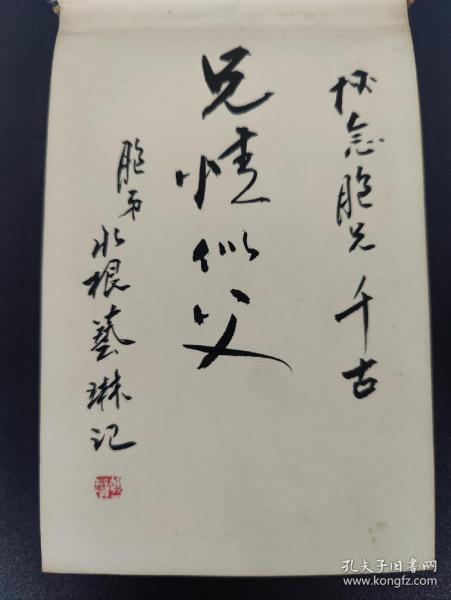 怀念胞兄千古
兄情似父
胞弟水根藝琳记
孔夫子旧书网
www.kongfz.com